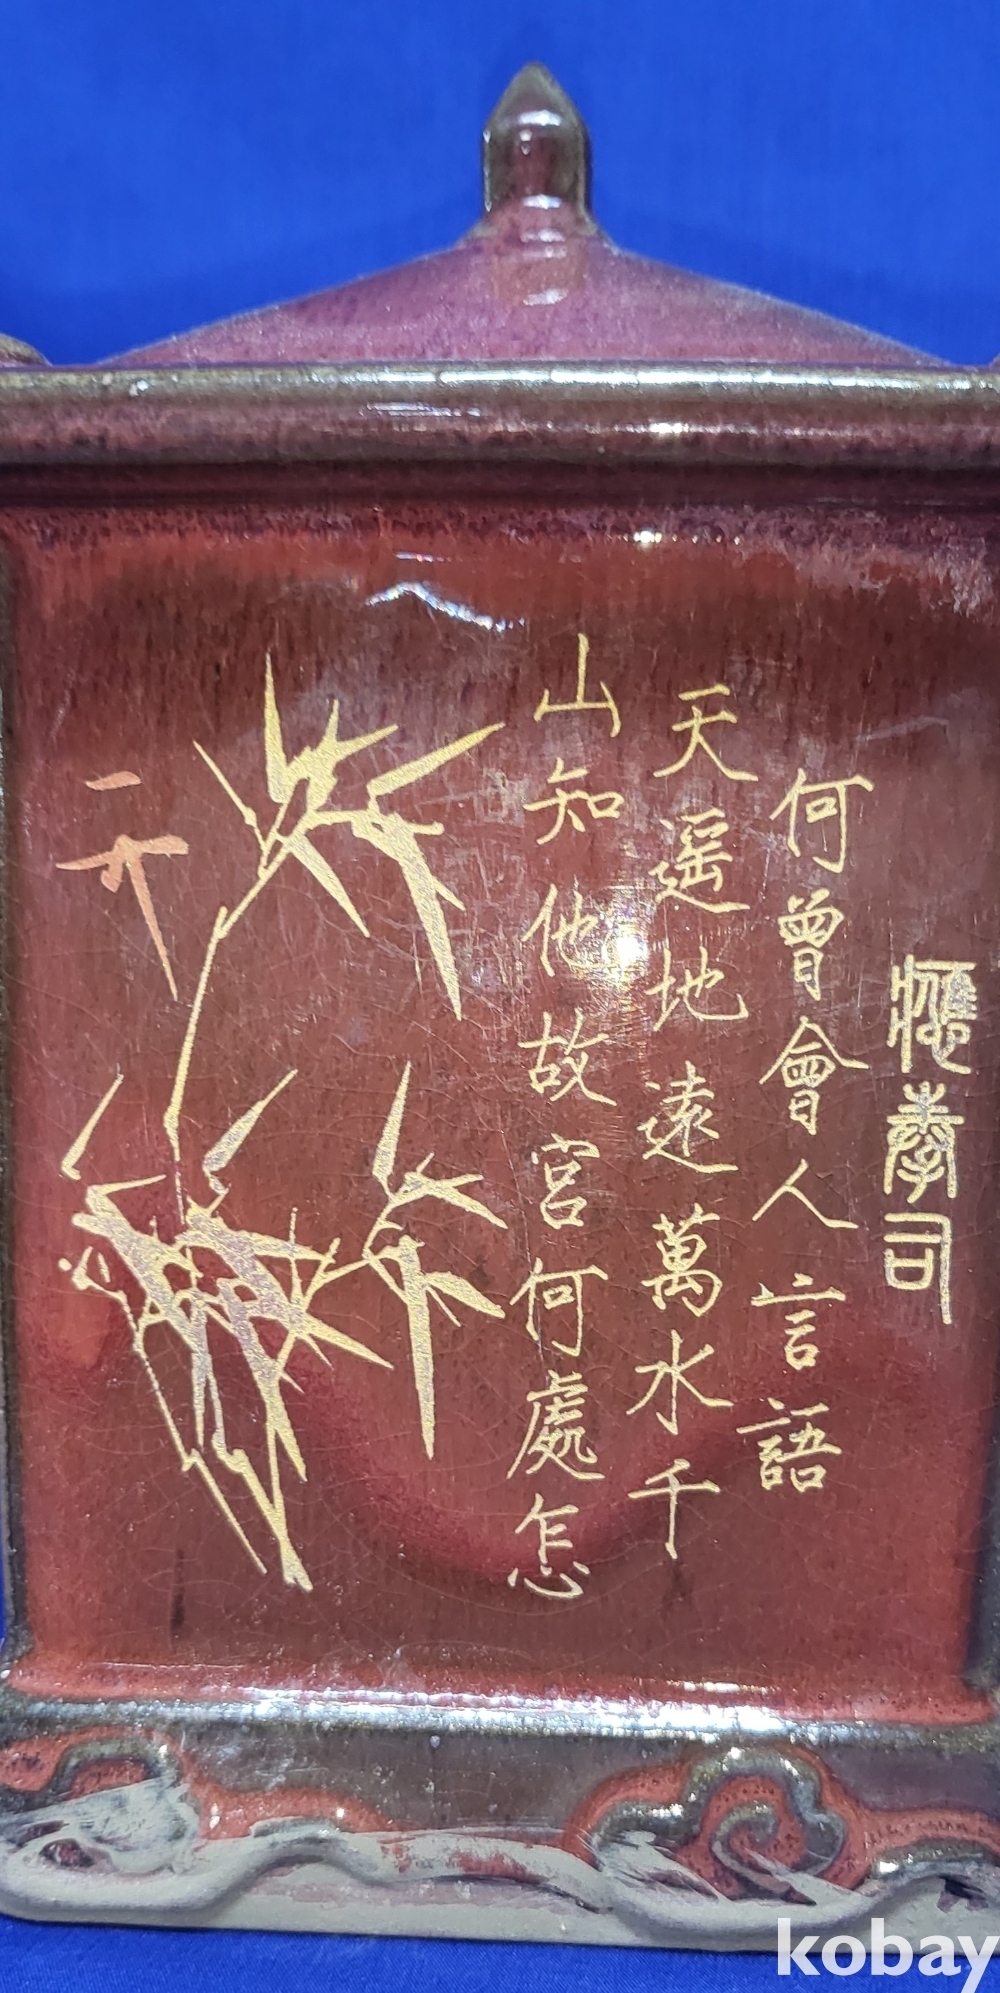 應奉司
何曾會人言語
天遥地遠萬水千
山知他故宮何處怎
kobay